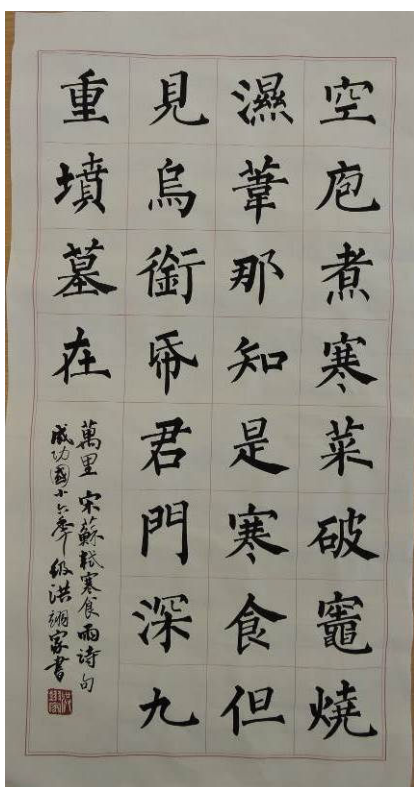 空庖煮寒菜破竈燒
濕葦那知是寒食但
見烏銜帋君門深九
重墳墓在
萬里 宋蘇軾寒食雨詩句
成功國小六年級洪翊家書